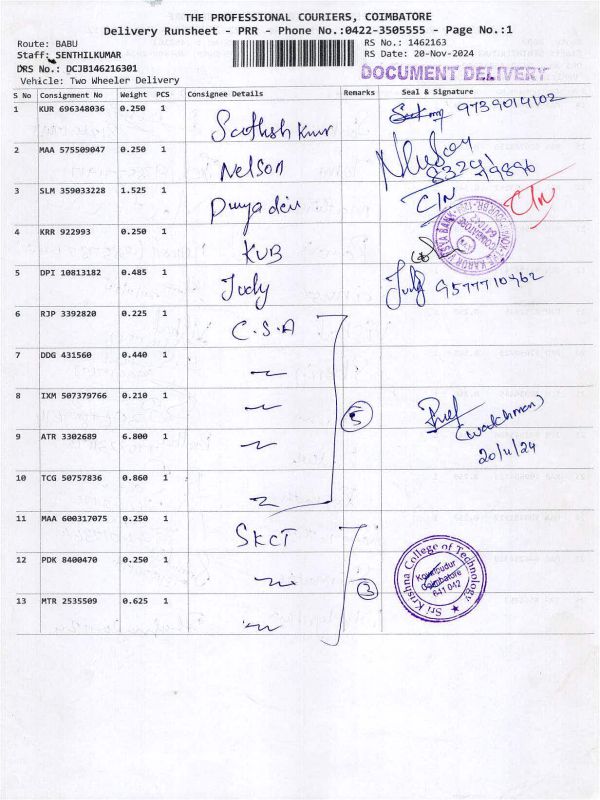 THE PROFESSIONAL COURIERS, COIMBATORE
Delivery Runsheet - PRR - Phone No.:0422-3505555 - Page No.:1
Route: BABU
RS No.: 1462163
Staff: SENTHILKUMAR
RS Date: 20-Nov-2024
DRS No.: DCJB146216301
DOCUMENT DELIVERY
Vehicle: Two Wheeler Delivery
S No Consignment No Weight PCS Consignee Details Remarks Seal & Signature
1 KUR 696348036 0.250 1 9739014102
2 MAA 575509047 0.250 1 Nelson
3 SLM 359033228 1.525 1 C/N C/N
4 KRR 922993 0.250 1 KVB
5 DPI 10813182 0.485 1 Judy Judy 9577710962
6 RJP 3392820 0.225 1 C.S.A
7 DDG 431560 0.440 1
8 IXM 507379766 0.210 1 5 (watchman)
9 ATR 3302689 6.800 1 20/11/24
10 TCG 50757836 0.860 1
11 MAA 600317075 0.250 1 SKCT
12 PDK 8400470 0.250 1 3
13 MTR 2535509 0.625 1
Sri Krishna College of Technology
Kovaipudur
Coimbatore
641 042